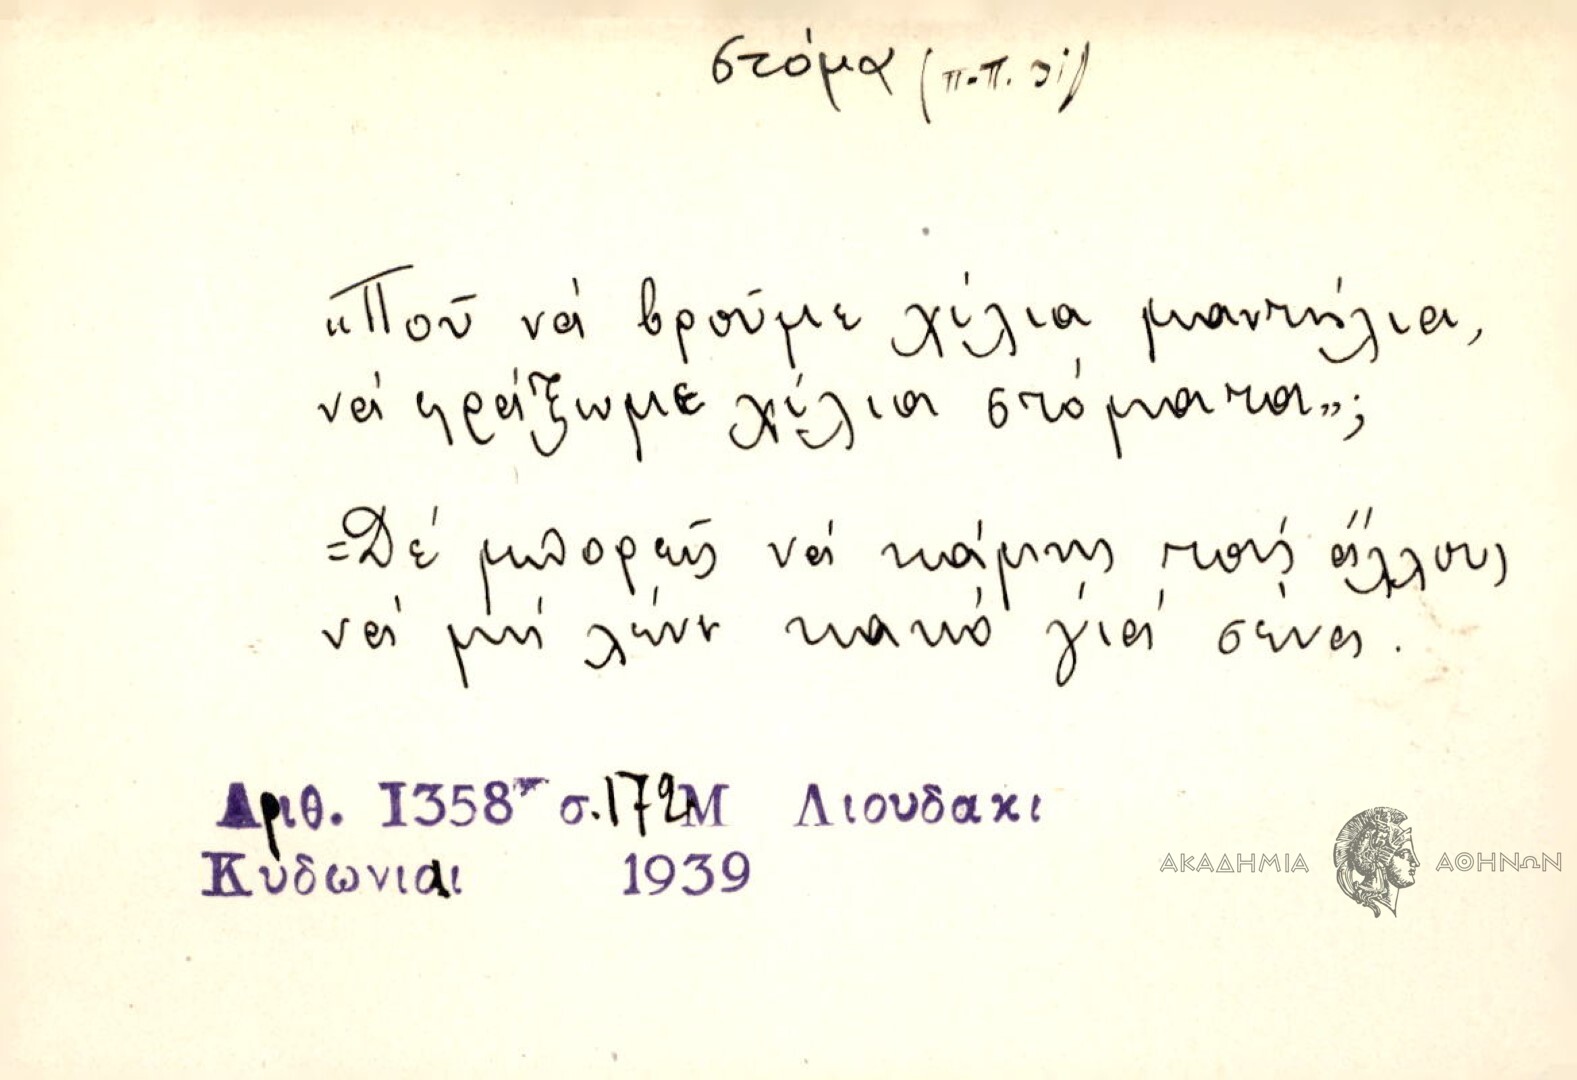 στόμα (π.π.
“Ποῦ νά βροῦμε χίλια μαντήλια,
νά φράξωμε χίλια στόματα”;
=Δέ μπορεῖς νά κάμης τούς ἄλλους
νά μή λένε κακό γιά σένα.
Αριθ. 1358 σ.172 Μ Λιουδακι
Κυδωνιαι 1939
ΑΚΑΔΗΜΙΑ ΑΘΗΝΩΝ